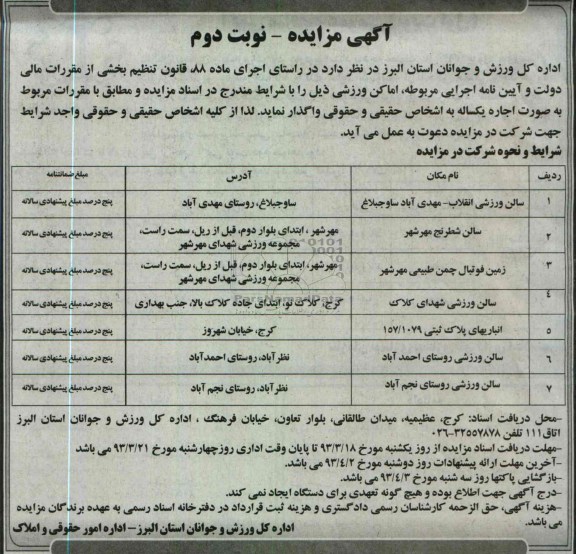 آگهی مزایده - نوبت دوم
اداره کل ورزش و جوانان استان البرز در نظر دارد در راستای اجرای ماده ۸۸، قانون تنظیم بخشی از مقررات مالی
دولت و آیین نامه اجرایی مربوطه، اماکن ورزشی ذیل را با شرایط مندرج در اسناد مزایده و مطابق با مقررات مربوط
به صورت اجاره یکساله به اشخاص حقیقی و حقوقی واگذار نماید. لذا از کلیه اشخاص حقیقی و حقوقی واجد شرایط
جهت شرکت در مزایده دعوت به عمل می آید.
شرایط و نحوه شرکت در مزایده
ردیف نام مکان آدرس مبلغ ضمانتنامه
۱ سالن ورزشی انقلاب- مهدی آباد ساوجبلاغ ساوجبلاغ، روستای مهدی آباد پنج درصد مبلغ پیشنهادی سالانه
۲ سالن شطرنج مهرشهر مهرشهر، ابتدای بلوار دوم، قبل از ریل، سمت راست، مجموعه ورزشی شهدای مهرشهر پنج درصد مبلغ پیشنهادی سالانه
۳ زمین فوتبال چمن طبیعی مهرشهر مهرشهر، ابتدای بلوار دوم، قبل از ریل، سمت راست، مجموعه ورزشی شهدای مهرشهر پنج درصد مبلغ پیشنهادی سالانه
٤ سالن ورزشی شهدای کلاک کرج، کلاک نو، ابتدای جاده کلاک بالا، جنب بهداری پنج درصد مبلغ پیشنهادی سالانه
۵ انباریهای پلاک ثبتی ۱۵۷/۱۰۷۹ کرج، خیابان شهروز پنج درصد مبلغ پیشنهادی سالانه
۶ سالن ورزشی روستای احمد آباد نظرآباد، روستای احمدآباد پنج درصد مبلغ پیشنهادی سالانه
۷ سالن ورزشی روستای نجم آباد نظرآباد، روستای نجم آباد پنج درصد مبلغ پیشنهادی سالانه
-محل دریافت اسناد: کرج، عظیمیه، میدان طالقانی، بلوار تعاون، خیابان فرهنگ ، اداره کل ورزش و جوانان استان البرز
اتاق ۱۱۱ تلفن ۳۲۵۵۷۸۷۸-۰۲۶
-مهلت دریافت اسناد مزایده از روز یکشنبه مورخ ۹۳/۳/۱۸ تا پایان وقت اداری روزچهارشنبه مورخ ۹۳/۳/۲۱ می باشد
-آخرین مهلت ارائه پیشنهادات روز دوشنبه مورخ ۹۳/٤/۲ می باشد.
-بازگشایی پاکتها روز سه شنبه مورخ ۹۳/٤/۳ می باشد.
-درج آگهی جهت اطلاع بوده و هیچ گونه تعهدی برای دستگاه ایجاد نمی کند.
-هزینه آگهی، حق الزحمه کارشناسان رسمی دادگستری و هزینه ثبت قرارداد در دفترخانه اسناد رسمی به عهده برندگان مزایده
می باشد.
اداره کل ورزش و جوانان استان البرز- اداره امور حقوقی و املاک